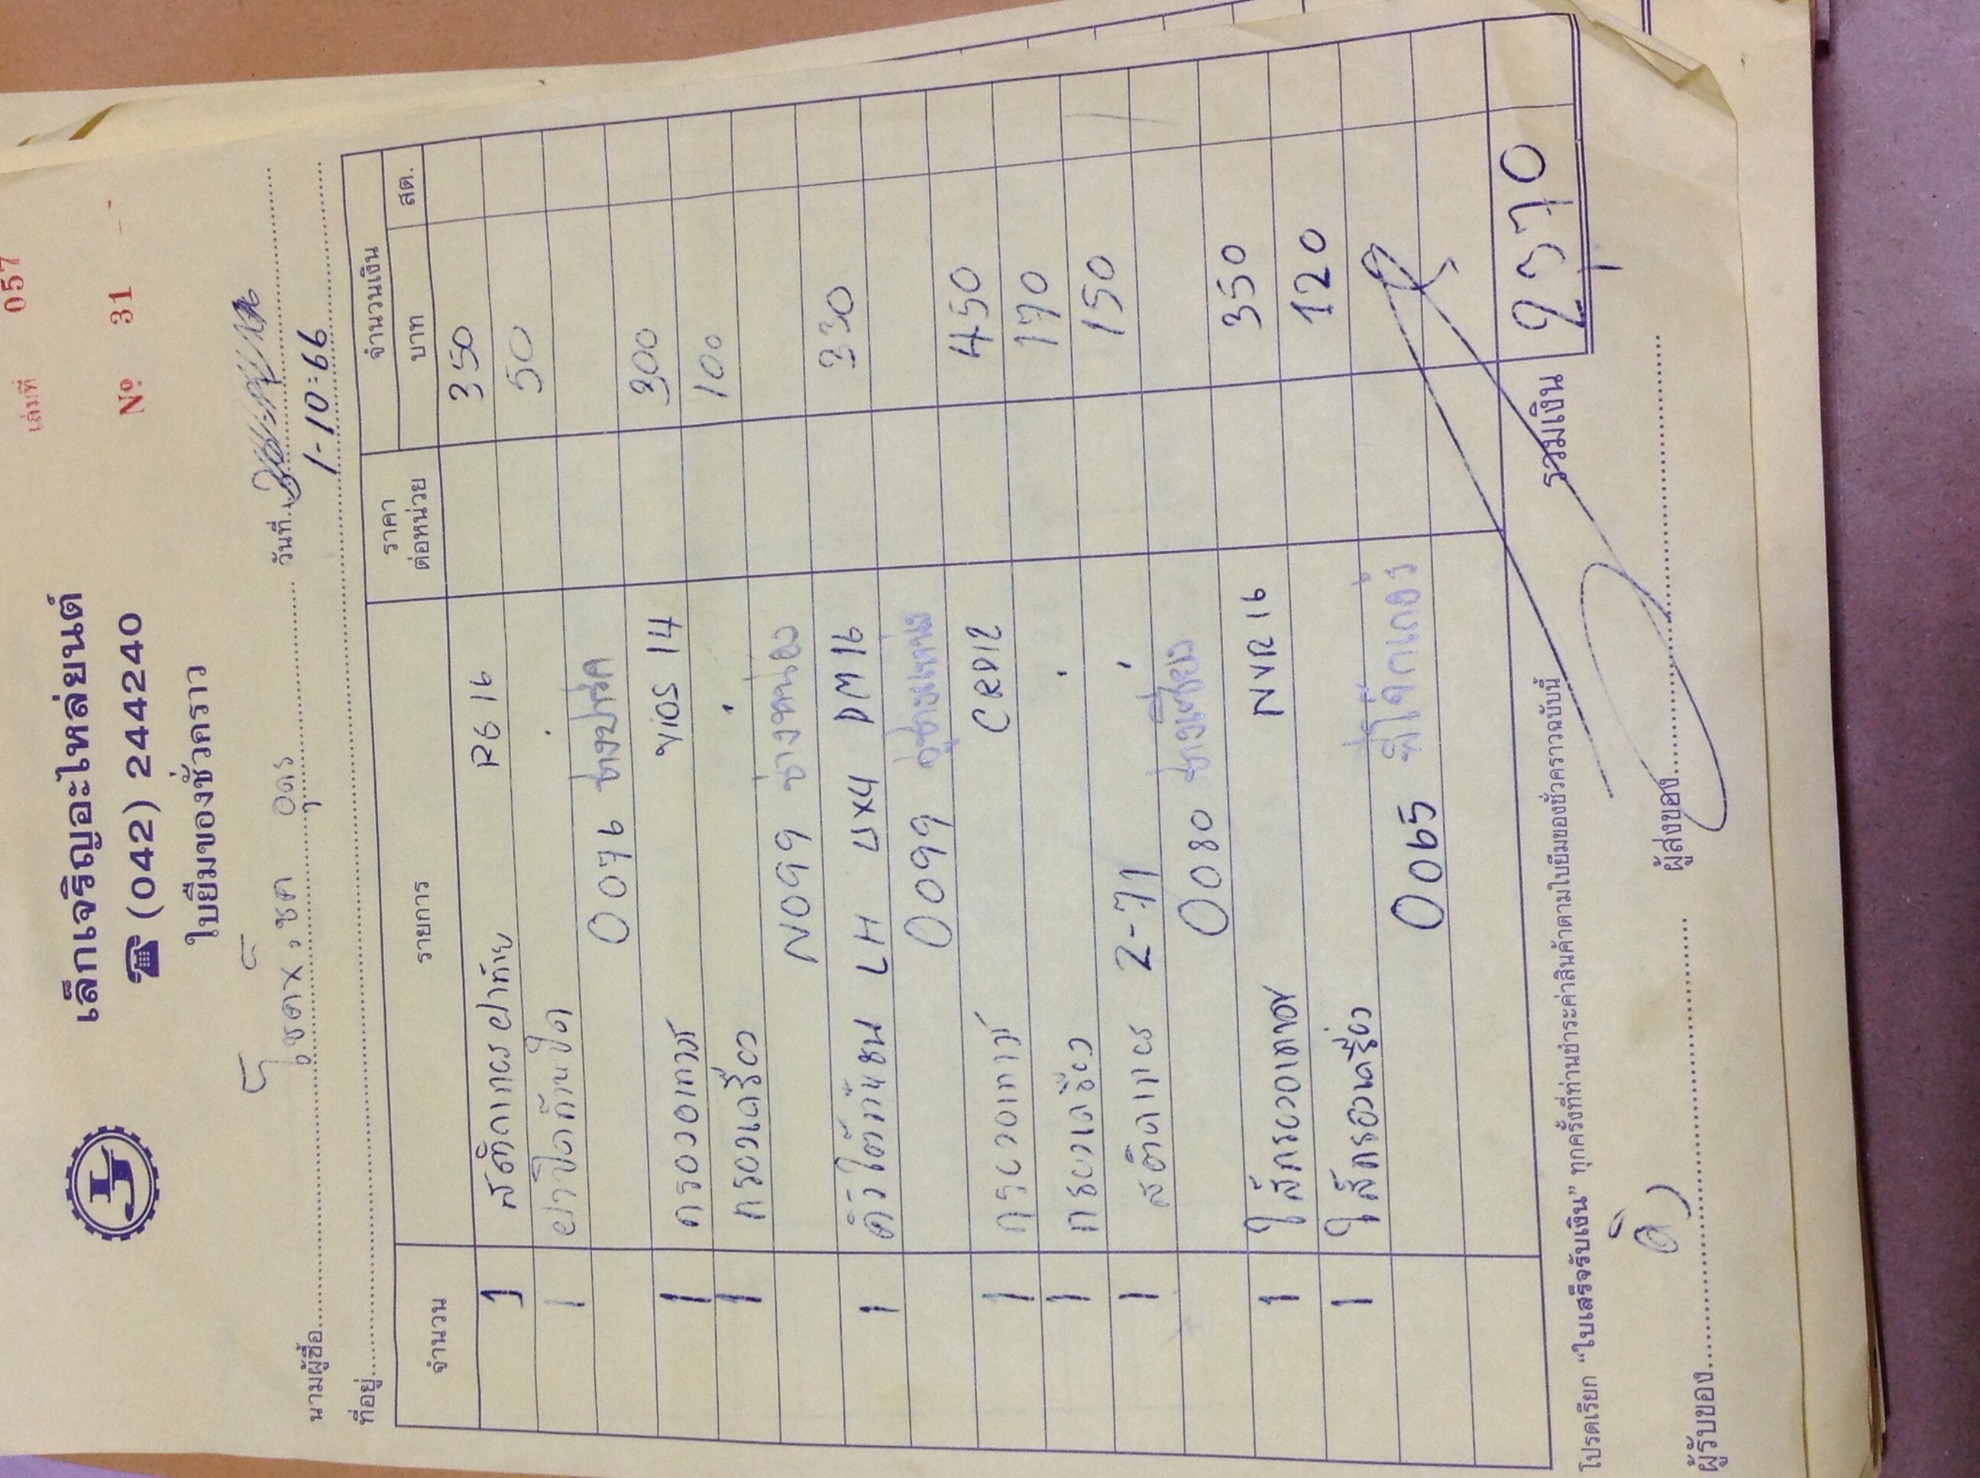 เล่มที่ 057
เล็กเจริญอะไหล่ยนต์
☎ (042) 244240
Nº 31
ใบยืมของชั่วคราว
นามผู้ซื้อ อุดร วันที่
1-10-66
ที่อยู่
จำนวน รายการ ราคาต่อหน่วย จำนวนเงิน
บาท สต.
1 สติดเกทร ฝาท้าย R6 16 350
1 50
0076 ช่าง
1 กรองอากาศ VIOS 14 300
1 กรองเครื่อง " 100
N099 ช่างหน่อง
1 LH Ux4 DM16 330
0099
1 กรองอากาศ CRD12 450
1 กรองเครื่อง " 170
1 2-71 " 150
0080 ช่าง
1 ไส้กรองอากาศ NVR 16 350
1 ไส้กรองเครื่อง 120
0065
รวมเงิน 2370
โปรดเรียก "ใบเสร็จรับเงิน" ทุกครั้งที่ท่านชำระค่าสินค้าตามใบยืมของชั่วคราวฉบับนี้
ผู้รับของ ผู้ส่งของ